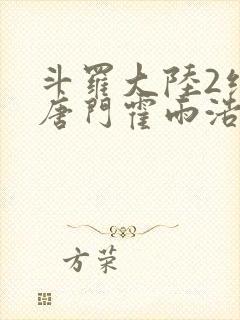 斗羅大陸2
唐門霍雨浩
方荣